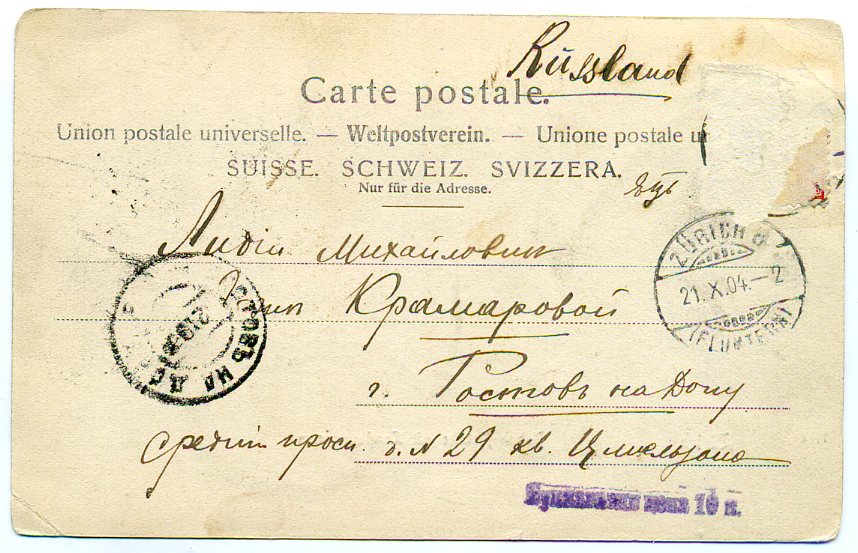 Russland
Carte postale.
Union postale universelle. — Weltpostverein. — Unione postale u
SUISSE. SCHWEIZ. SVIZZERA.
Nur für die Adresse.
ZÜRICH 8
21.X.04.–2
(FLUNTERN)
Лидіи Михайловнѣ
Крамаровой
г. Ростовъ на Дону
средній просп. д. N 29 кв.
РОСТОВЪ НА ДО
цѣна 10 к.